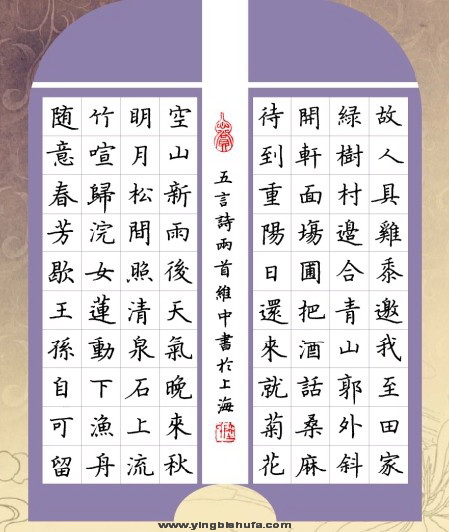 故人具雞黍邀我至田家
綠樹村邊合青山郭外斜
開軒面塲圃把酒話桑麻
待到重陽日還來就菊花
五言詩兩首維中書扵上海
空山新雨後天氣晚來秋
明月松間照清泉石上流
竹喧歸浣女蓮動下漁舟
随意春芳歇王孫自可留
www.yingbishufa.com